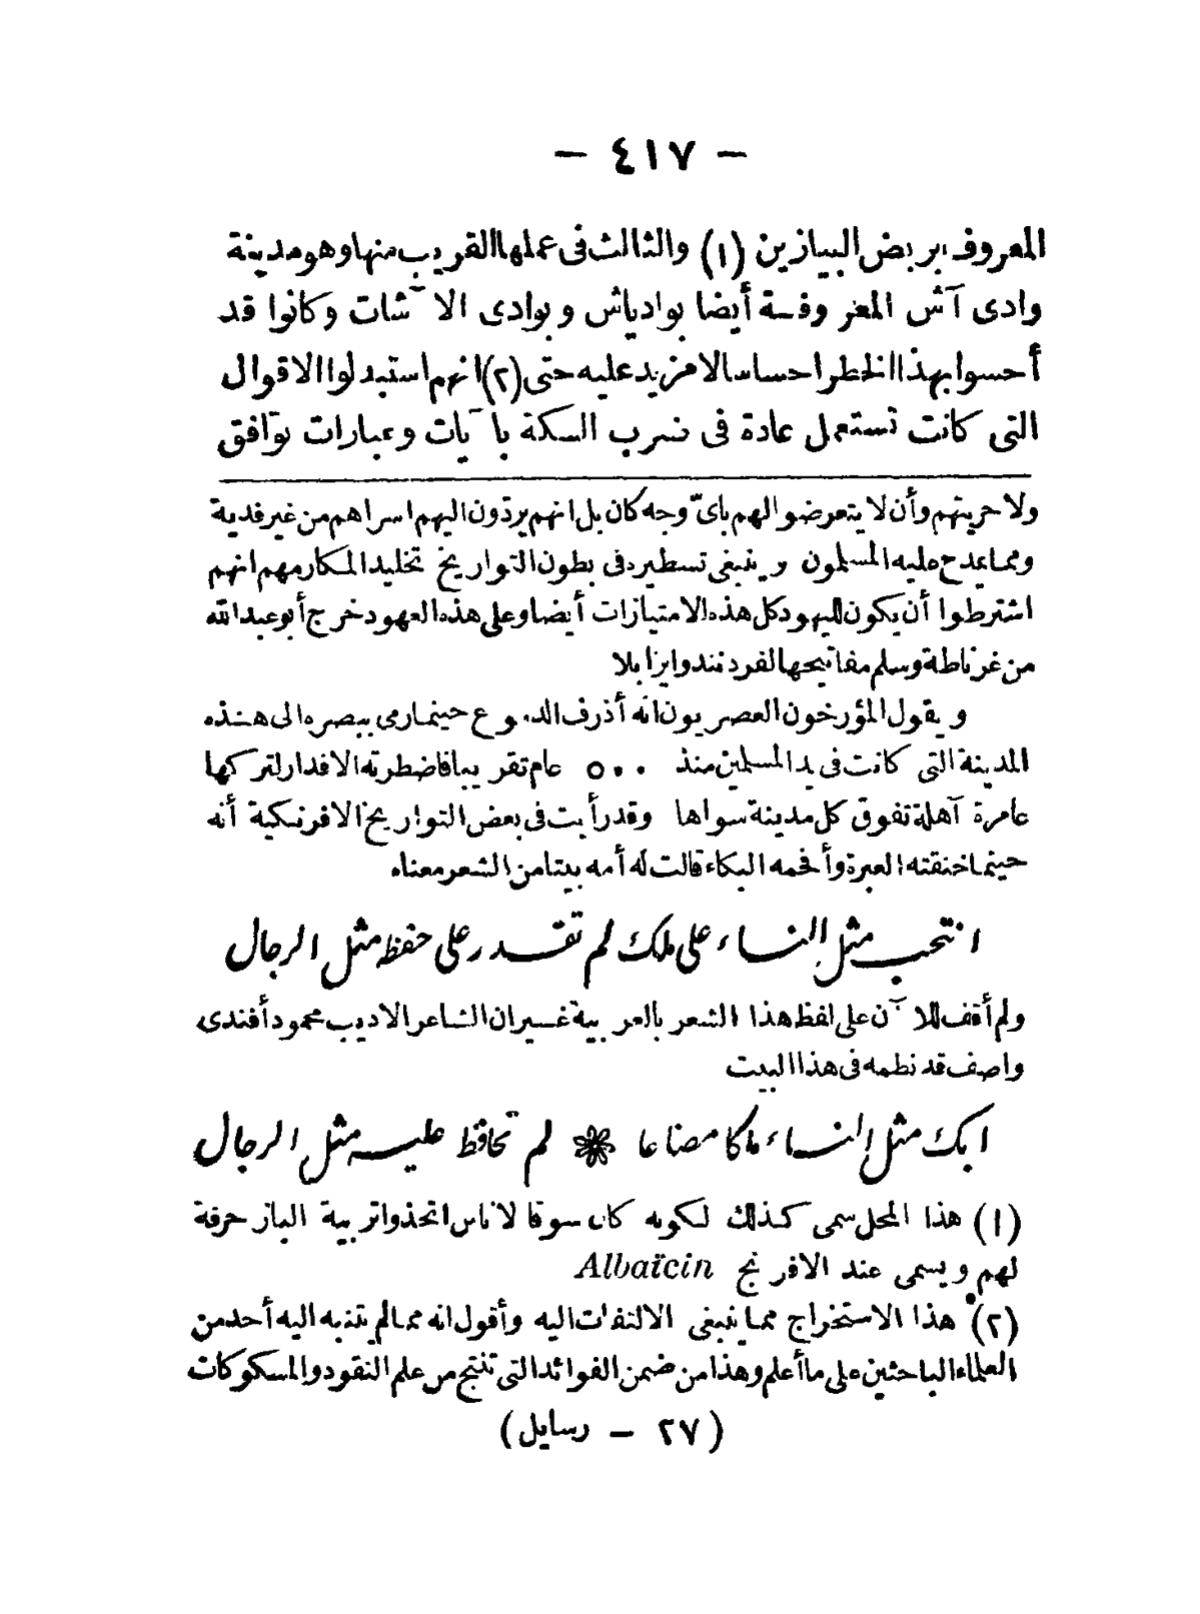 — ٤١٧ —
المعروف بربض البيازين (١) والثالث فى عملها القريب منها وهو مدينة
وادى آش المعروفة أيضا بوادياش وبوادى الآشات وكانوا قد
أحسوا بهذا الخطر احساسا لامزيد عليه حتى (٢) انهم استبدلوا الاقوال
التى كانت تستعمل عادة فى ضرب السكة بآيات وعبارات توافق
ولا حريتهم وأن لا يتعرضوا لهم بأىّ وجه كان بل انهم يردّون اليهم اسراهم من غير فدية
ومما يمدح عليه المسلمون وينبغى تسطيره فى بطون التواريخ تخليدا لمكارمهم انهم
اشترطوا أن يكون لليهود كل هذه الامتيازات أيضا وعلى هذه العهود خرج أبو عبد الله
من غرناطة وسلم مفاتيحها لفرد نند وايزابلا
ويقول المؤرخون العصريون انه أذرف الدموع حينما رمى ببصره الى هذه
المدينة التى كانت فى يد المسلمين منذ ٥٠٠ عام تقريبا فاضطرته الاقدار لتركها
عامرة آهلة تفوق كل مدينة سواها وقد رأيت فى بعض التواريخ الافرنكية أنه
حينما خنقته العبرة وأفحمه البكاء قالت له أمه بيتا من الشعر معناه
انتحب مثل النساء على ملك لم تقدر على حفظه مثل الرجال
ولم أقف للآن على لفظ هذا الشعر بالعربية غير ان الشاعر الاديب محمود أفندى
واصف قد نظمه فى هذا البيت
ابك مثل النساء ملكا مضاعا ❋ لم تحافظ عليه مثل الرجال
(١) هذا المحل سمى كذلك لكونه كان سوقا لاناس اتخذوا تربية الباز حرفة
لهم ويسمى عند الافرنج Albaïcin
(٢) هذا الاستخراج مما ينبغى الالتفات اليه وأقول انه مما لم يتنبه اليه أحد من
العلماء الباحثين على ما أعلم وهذا من ضمن الفوائد التى تنتج من علم النقود والمسكوكات
(٢٧ — رسايل)